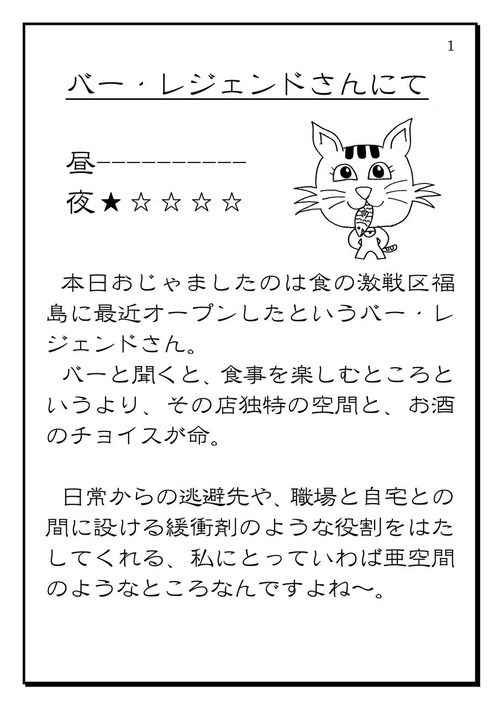 1
バー・レジェンドさんにて
昼----------
夜★☆☆☆☆
本日おじゃましたのは食の激戦区福
島に最近オープンしたというバー・レ
ジェンドさん。
バーと聞くと、食事を楽しむところと
いうより、その店独特の空間と、お酒
のチョイスが命。
日常からの逃避先や、職場と自宅との
間に設ける緩衝剤のような役割をはた
してくれる、私にとっていわば亜空間
のようなところなんですよね～。